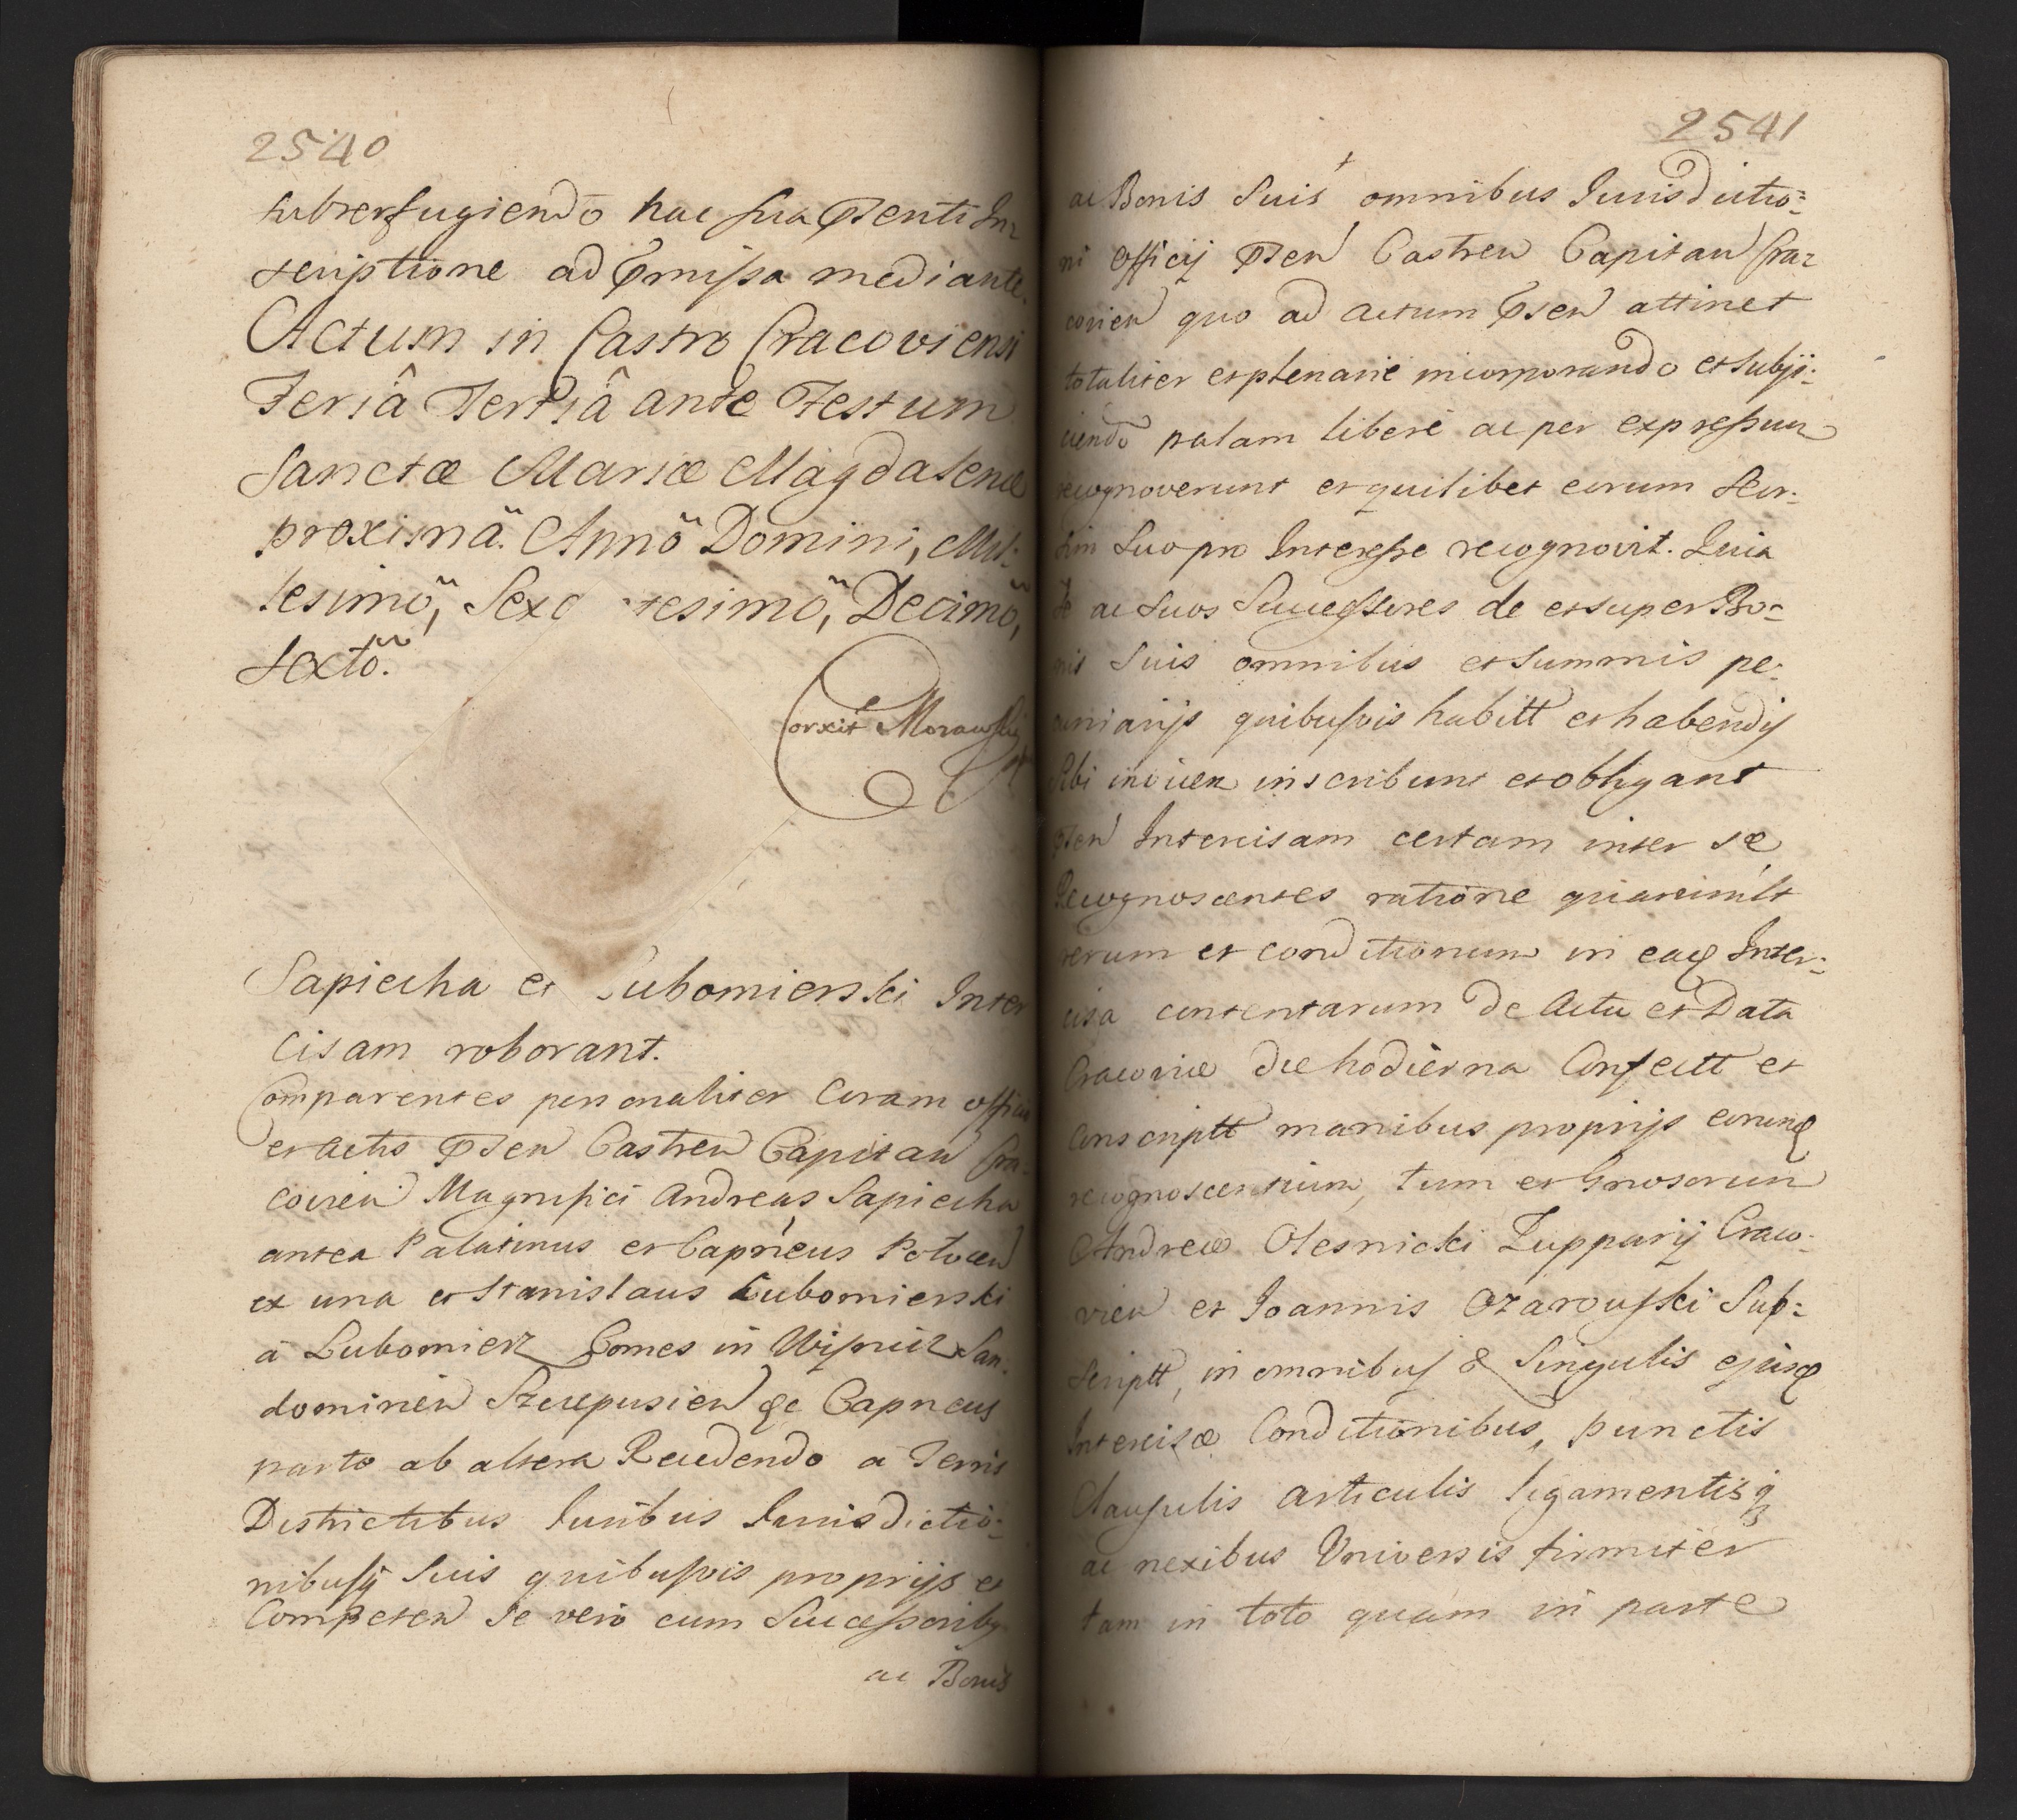 2540
subterfugiendō hac sua Pnsenti In=
scriptione ad Pmissa mediante.
Actum in Castro Cracoviensi
Feriâ Tertiâ ante Festum
Sanctæ Mariæ Magdalenæ
proximâ. Annõ Domini, Mil-
lesimõ, Sex tesimõ, Decimõ,
Sextõ.
Corxit Morawski
Sapiecha et Lubomierski Inter
cisam roborant.
Comparentes personaliter Coram officio
et actis Psen Castren Capitan Cra-
covien Magnifici Andreas Sapiecha
antea Palatinus et Capneus Polocen
ex una et Stanislaus Lubomierski
á Lubomierz Comes in Wisnicz San-
domirien Szcepusien &c Capneus
parte ab altera Recedendo a Terris
Districtibus Juribus Jurisdictio=
nibusq suis quibusvis proprijs et
Competen se vero cum Successoriby
ac Bonis
2541
ac Bonis Suis omnibus Jurisdictio=
ni Officij Psen Castren Capitan Cra=
covien quo ad actum Psen attinet
totaliter et plenarie incorporando et subjj-
ciendo palam libere ac per expressum
recognoverunt et quilibet eorum seor-
sim suo pro Interesse recognovit. Quia
se ac suos Successores de et super Bo=
nis Suis omnibus et summis pe-
cuniarijs quibusvis habitt et habendis
Sibi invicem inscribunt et obligant
Psen Intercisam certam inter se
Recognoscentes ratione quarumlt
rerum et conditionum in eadq Inter-
cisa contentarum de Actu et Data
Cracoviæ die hodierna Confectt et
Conscriptt manibus proprijs eorund
recognoscentium, tum et Gnosorum
Andreæ Olesnicki Zupparij Craco-
vien et Joannis Ozarowski Sub=
scriptt, in omnibus & singulis ejusd
Intercisæ Conditionibus, punctis
Clausulis articulis ligamentisq
ac nexibus Universis firmiter
tam in toto quam in parte